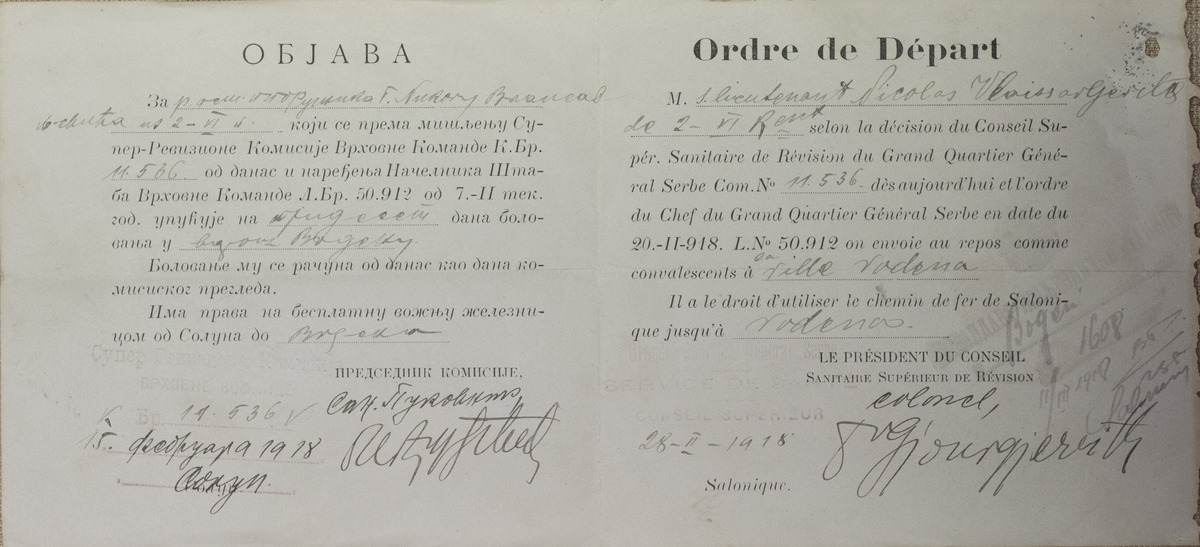 ОБЈАВА
За
из 2–VI п. који се према мишљењу Су-
пер-Ревизионе Комисије Врховне Команде К.Бр.
11.536. од данас и наређења Начелника Шта-
ба Врховне Команде Л.Бр. 50.912 од 7.-II тек.
год. упућује на тридесет дана боло-
вања у Водену.
Боловање му се рачуна од данас као дана ко-
мисиског прегледа.
Има права на бесплатну вожњу железни-
цом од Солуна до Водена
ПРЕДСЕДНИК КОМИСИЈЕ,
Сан. Пуковник,
Бр. 11.536
15. фебруара 1918
Солун.
Ordre de Départ
M. s. lieutenant Nicolas
de 2–VI Rent selon la décision du Conseil Su-
pér. Sanitaire de Révision du Grand Quartier Géné-
ral Serbe Com. No 11.536. dès aujourd'hui et l'ordre
du Chef du Grand Quartier Général Serbe en date du
20.-II-918. L. No 50.912 on envoie au repos comme
convalescents à la ville Vodena
Il a le droit d'utiliser le chemin de fer de Saloni-
que jusqu'à Vodena.
LE PRÉSIDENT DU CONSEIL
SANITAIRE SUPÉRIEUR DE RÉVISION
colonel,
SERVICE DE SANTÉ
CONSEIL SUPÉRIEUR
28–II–1918
Salonique.
1608